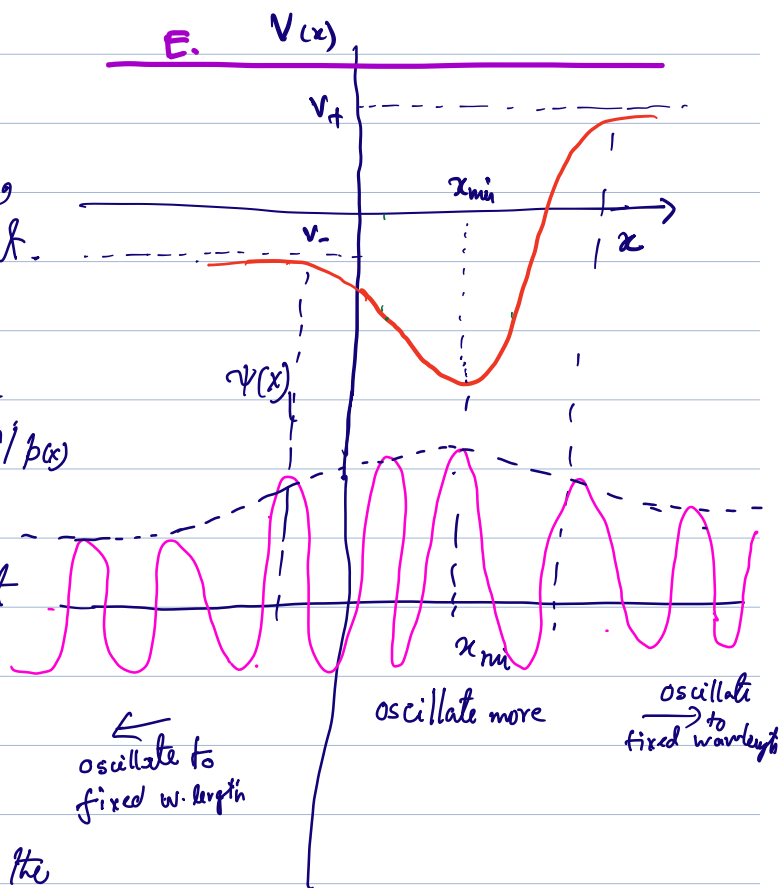 V(x)
E.
V+
x min
x
V-
ψ(x)
/p(x)
x mi
oscillate more
oscillate to
fixed w.length
oscillate
to
fixed wavelength
the